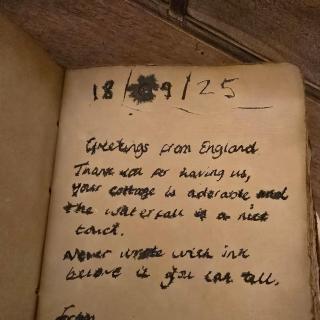 18/09/25
Greetings from England
Thank you for having us,
your cottage is adorable and
the waterfall is a nice
touch.
Never wrote with ink
before if you can tell.
From